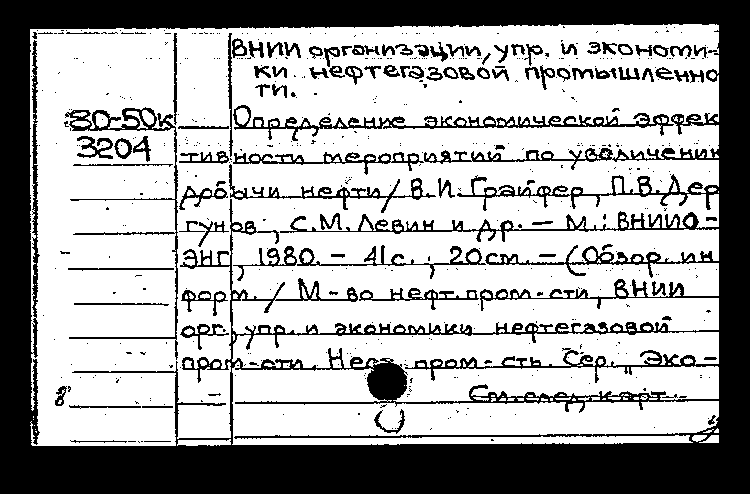 ВНИИ организации, упр. и экономи-
ки нефтегазовой промышленно
ти.
80-50к
3204
Определение экономической эффек
тивности мероприятий по увеличени
добычи нефти / В.И. Грайфер, П.В. Дер
гунов, С.М. Левин и др. — М.: ВНИИО-
ЭНГ, 1980. — 41с.; 20см. — (Обзор. ин
форм. / М-во нефт. пром-сти, ВНИИ
орг., упр. и экономики нефтегазовой
пром-сти. пром-сть. Сер. „Эко-
См. след. карт.